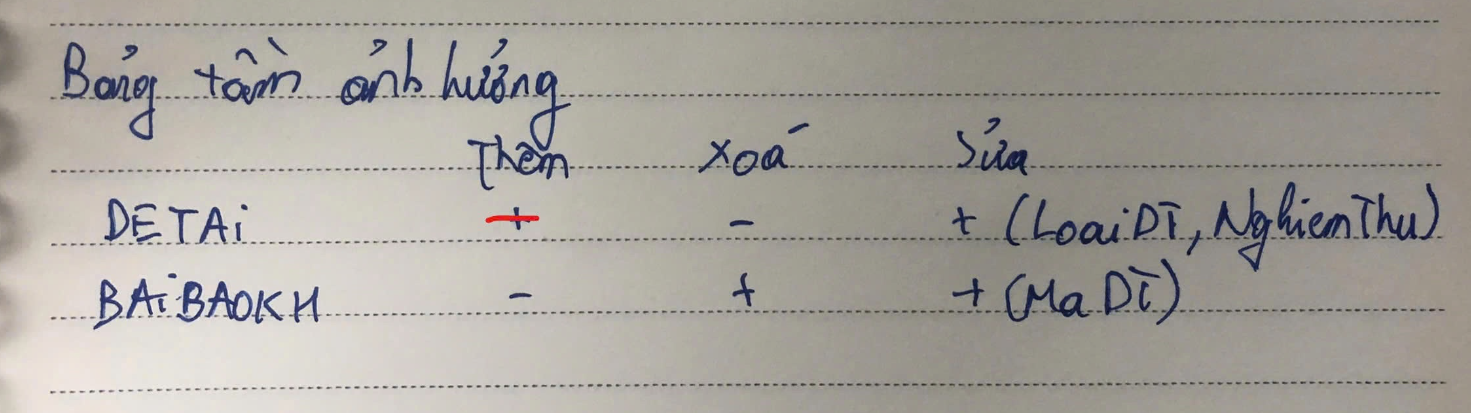 Bảng tầm ảnh hưởng
Thêm Xoá Sửa
DETAi + - + (LoaiDT, NghiemThu)
BAiBAOKH - + + (MaDT)